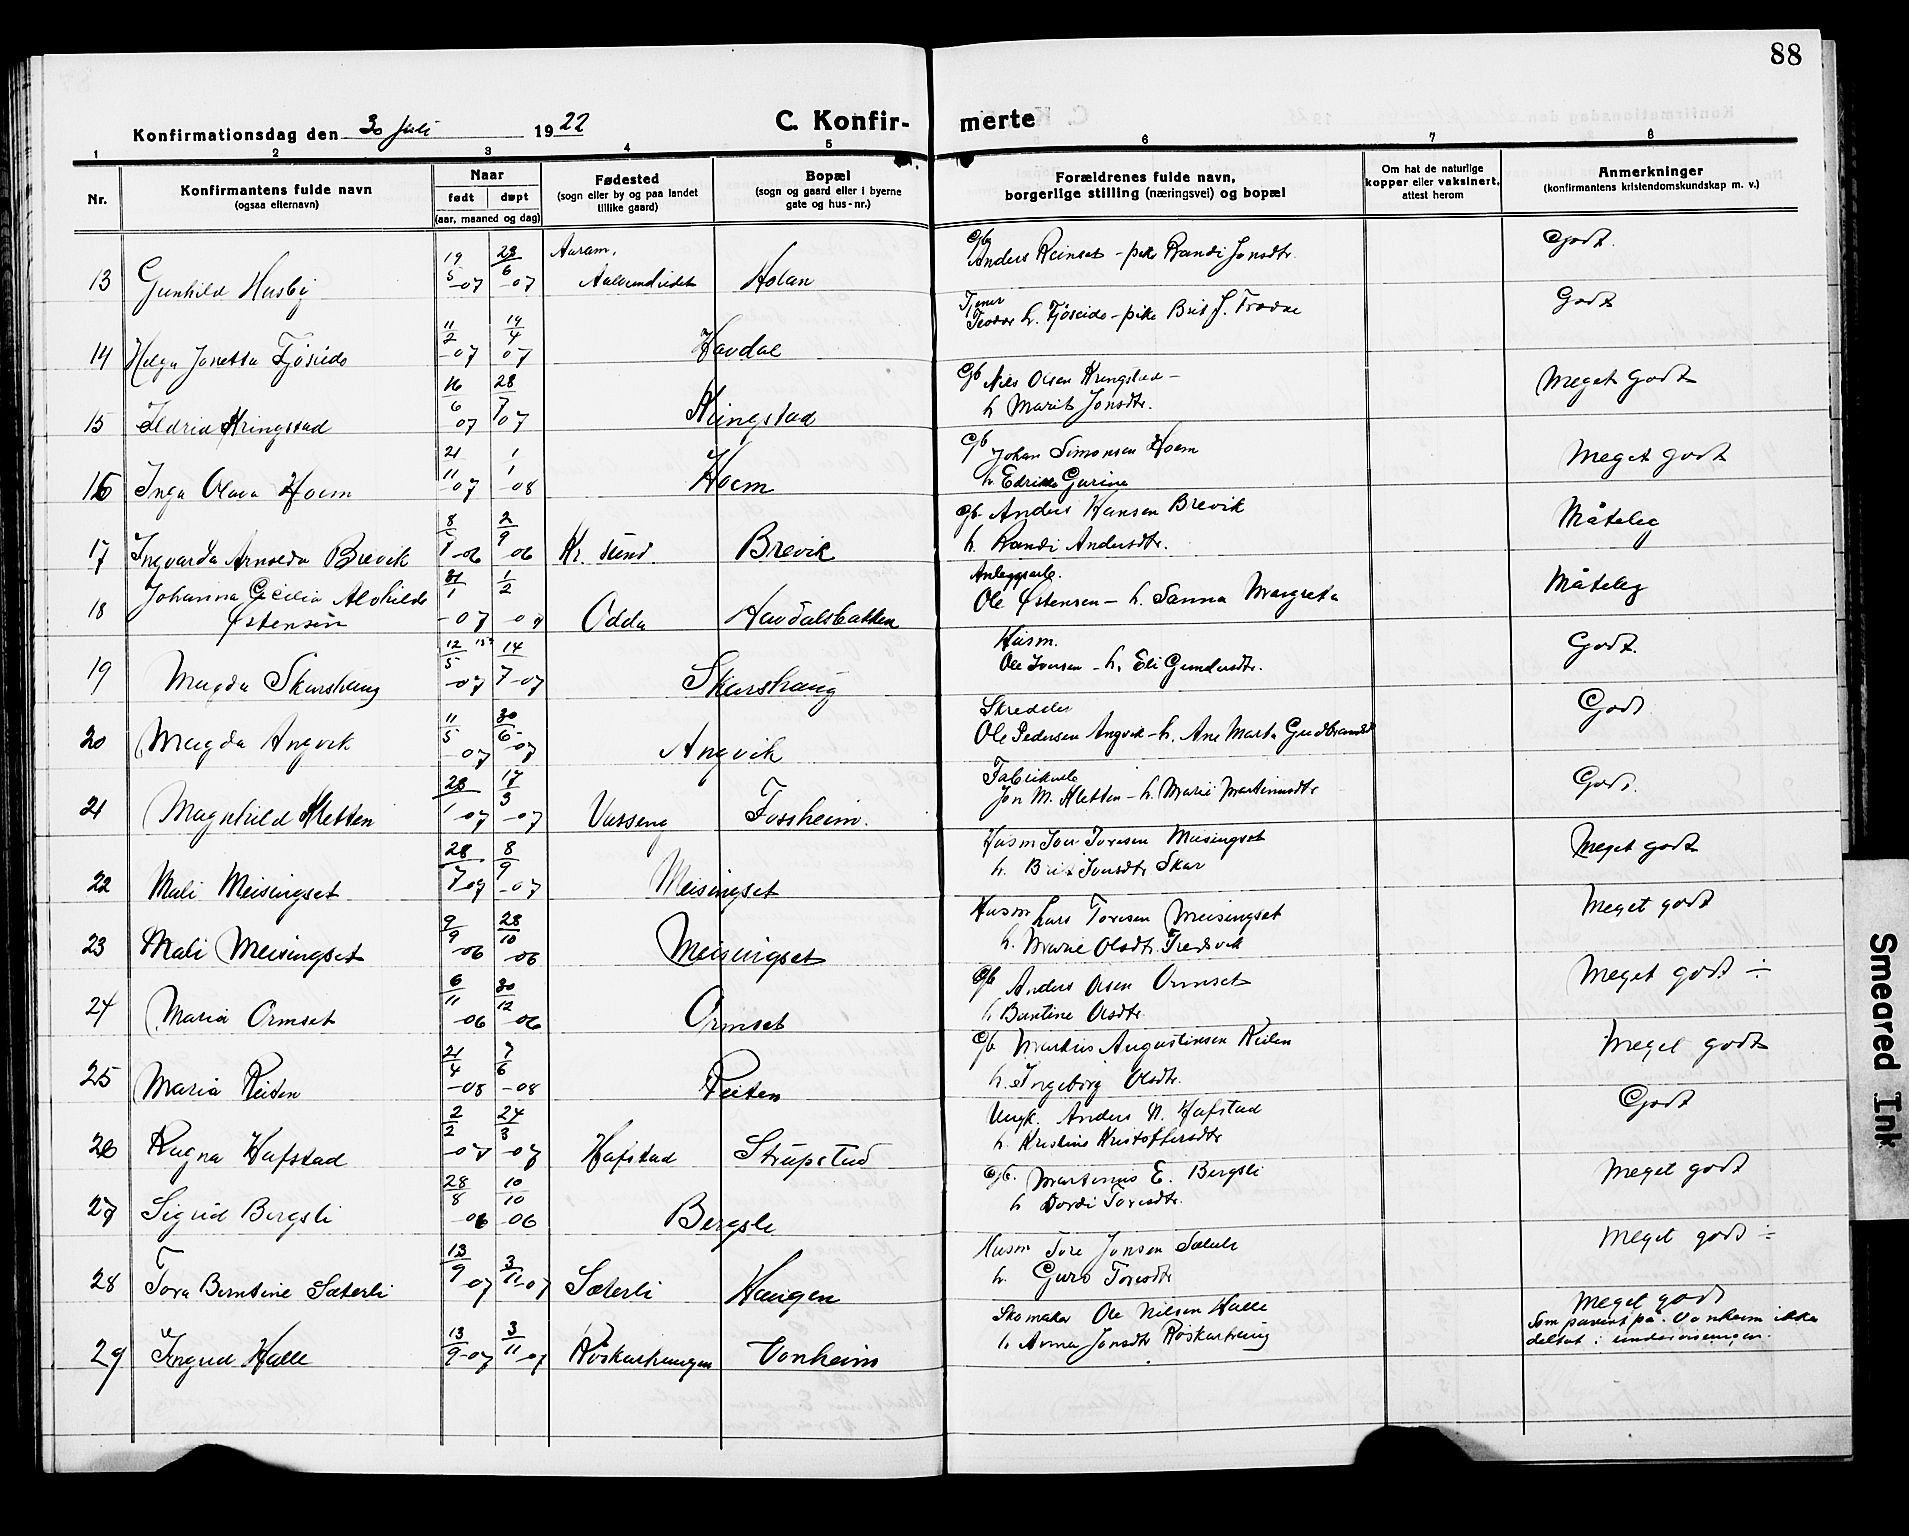 88
Konfirmationsdag den 30 Juli 1922
C. Konfir- merte
1 2 3 4 5 6 7 8
Nr.
Konfirmantens fulde navn
(ogsaa efternavn)
Naar
født døpt
(aar, maaned og dag)
Fødested
(sogn eller by og paa landet
tillike gaard)
Bopæl
(sogn og gaard eller i byerne
gate og hus-nr.)
Forældrenes fulde navn,
borgerlige stilling (næringsvei) og bopæl
Om hat de naturlige
kopper eller vaksinert,
attest herom
Anmerkninger
(konfirmantens kristendomskundskap m. v.)
13 Gunhild Husby 19/5-07 23/6-07 Aalvundeidet Holan Anders Reinset - pike Randi Jonsdtr. Godt.
14 Helga Jonetta Fjøseide 11/2-07 14/4 07 Havdal Tjener
Teodor L. Fjøseide - pike Brit J. Trodae Godt
15 Ildrid Kringstad 16/6 07 28/7 07 Kringstad G/b Nils Olsen Kringstad -
h. Marit Jonsdtr. Meget Godt
16 Inga Olava Hoem 21/11-07 1/1-08 Hoem G/b Johan Simonsen Hoem
h. Gurine Meget godt
17 Ingvarda Arnolda Brevik 8/8-06 2/9-06 Kr. sund Brevik G/b. Anders Hansen Brevik
h. Randi Andersdtr. Måteleg
18 Johanna Cecilia Alvhilde
Østensen 31/1-07 1/2-07 Odda Havdalsbakken Anleggsarb.
Ole Østensen - h. Sanna Margreta Måteleg
19 Magda Skarshaug 12/5-07 14/7-07 Skarshaug Husm.
Ole Iversen - h. Eli Gundersdtr. Godt.
20 Magda Angvik 11/5-07 30/6-07 Angvik Skredder
Ole Pedersen Angvik - h. Ane Marta Gudbrandsd Godt
21 Magnhild Kletten 23/1-07 17/3-07 Vasseng Fossheim. Fabrikarb
Jon M. Kletten - h. Marie Martinusdtr Godt.
22 Mali Meisingset 28/7 07 8/9-07 Meisingset Husm Iver Toresen Meisingset
h. Brit Iversdtr Skar Meget godt
23 Mali Meisingset 9/9-06 28/10-06 Meisingset Husm Lars Toresen Meisingset
h. Marie Olsdtr. Tredsvik Meget godt
24 Maria Ormset 6/11-06 30/12-06 Ormset G/b Anders Olsen Ormset
h. Berntine Olsdtr. Meget godt ÷
25 Maria Reiten 21/4-08 7/6-08 Reiten G/b. Markus Augustinsen Reiten
h. Ingeborg Olsdtr. Meget godt
26 Ragna Hafstad 2/2-07 24/3-07 Hafstad Strupstad Ungk. Anders N. Hafstad
h. Kristine Kristoffersdtr Godt
27 Sigrid Bergsli 28/8-06 10/10-06 Bergsli G/b. Martinus E. Bergsli
h. Dordi Toresdtr. Meget godt
28 Tora Berntine Sæterli 13/9-07 3/11-07 Sæterli Haugen Husm Tore Jonsen Sæterli
h. Guro Toresdtr Meget godt ÷
29 Ingrid Halle 13/9-07 3/11-07 Røskarhaugen Vonheim Skomaker Ole Nilsen Halle
h. Anna Jonsdtr Røskarhaug Meget godt
Som pasient på Vonheim ikke
deltat i undervisningen.
Smeared Ink